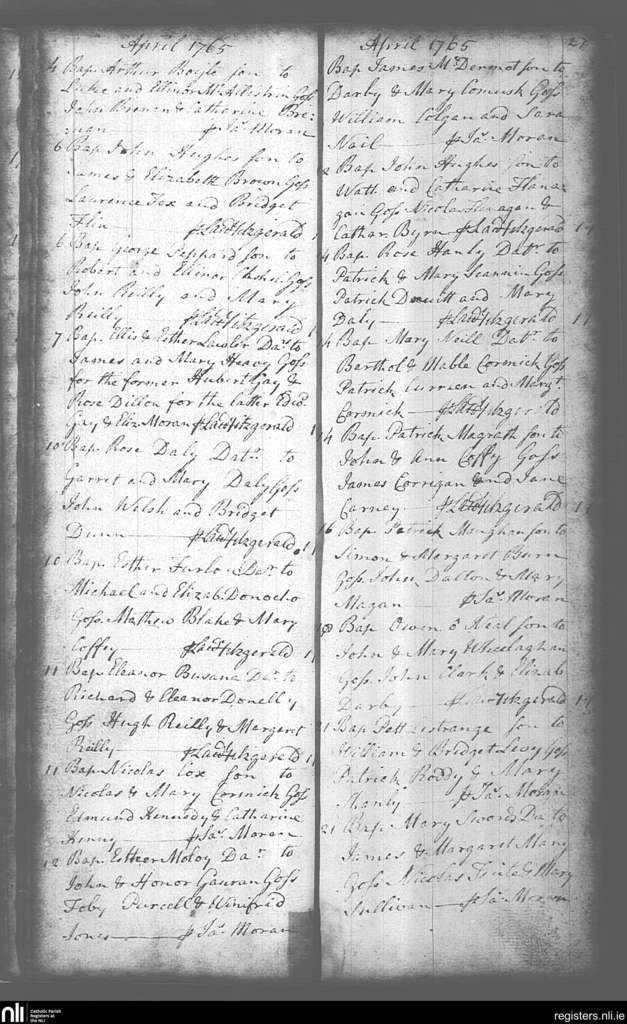 April 1765
4 Bap. Arthur Boyle son to
Luke and Ellinor McAlestrin Goss
John Brenan & Catharine Bre-
=nan ꝑ Ja. Moran
6 Bap. John Hughes son to
James & Elizabeth Brown Goss
Laurence Fox and Bridget
Flin ꝑ Lawd. Fitzgerald
6 Bap. George Seppard son to
Robert and Elinor Goss
John Reilly and Mary
Reilly ꝑ Lawd. Fitzgerald
7 Bap. Ellis & Esther Lawler Das. to
James and Mary Heavy Goss
for the former Hubert Gay &
Rose Dillon for the latter Edwd.
Gay & Eliz. Moran ꝑ Lawd. Fitzgerald
10 Bap. Rose Daly Datr. to
Garret and Mary Daly Goss
John Welsh and Bridget
Dunn ꝑ Lawd. Fitzgerald
10 Bap. Esther Furlo Dar. to
Michael and Elizab. Donocho
Goss. Mathew Blake & Mary
Coffey ꝑ Lawd. Fitzgerald
11 Bap. Eleanor Busana Da. to
Richard & Eleanor Donelly
Goss Hugh Reilly & Margaret
Reilly ꝑ Lawd. Fitzgerald
11 Bap. Nicolas Cox son to
Nicolas & Mary Cormick Goss
Edmund Kennedy & Catharine
Kenny ꝑ Ja. Moran
12 Bap. Esther Moloy Dar. to
John & Honor Gauran Goss
Toby Purcell & Winifrid
Jones ꝑ Ja. Moran
April 1765
Bap. James McDermot son to
Darby & Mary Comusk Goss
William Colgan and Sara
Nail ꝑ Ja. Moran
Bap. John Hughes son to
Watt and Catharine Flana-
gan Goss. Nicolas Flanagan &
Cathar. Byrn ꝑ Lawd. Fitzgerald
14 Bap. Rose Hanly Datr. to
Patrick & Mary Jeannin Goss
Patrick and Mary
Daly ꝑ Lawd. Fitzgerald
14 Bap. Mary Neill Datr. to
Barthol. & Mable Cormick Goss
Patrick Curraen and Margt.
Cormick ꝑ Lawd. Fitzgerald
14 Bap. Patrick Magrath son to
John & Ann Coffy Goss
James Corrigan and Jane
Carney ꝑ Lawd. Fitzgerald
16 Bap. Patrick Maughan son to
Simon & Margaret Burn
Goss. John Dalton & Mary
Magan ꝑ Ja. Moran
18 Bap. Owen o Neal son to
John & Mary Wheelaghan
Goss John Clark & Elizab.
Darby ꝑ Lawd. Fitzgerald
21 Bap. Patt Lestrange son to
William & Bridget Levy Goss
Patrick Roddy & Mary
Manly ꝑ Ja. Moran
21 Bap. Mary Swords Da. to
James & Margaret Many
Goss Nicolas & Mary
Sullivan ꝑ Ja. Moran
nli Catholic Parish
Registers at
the NLI
registers.nli.ie